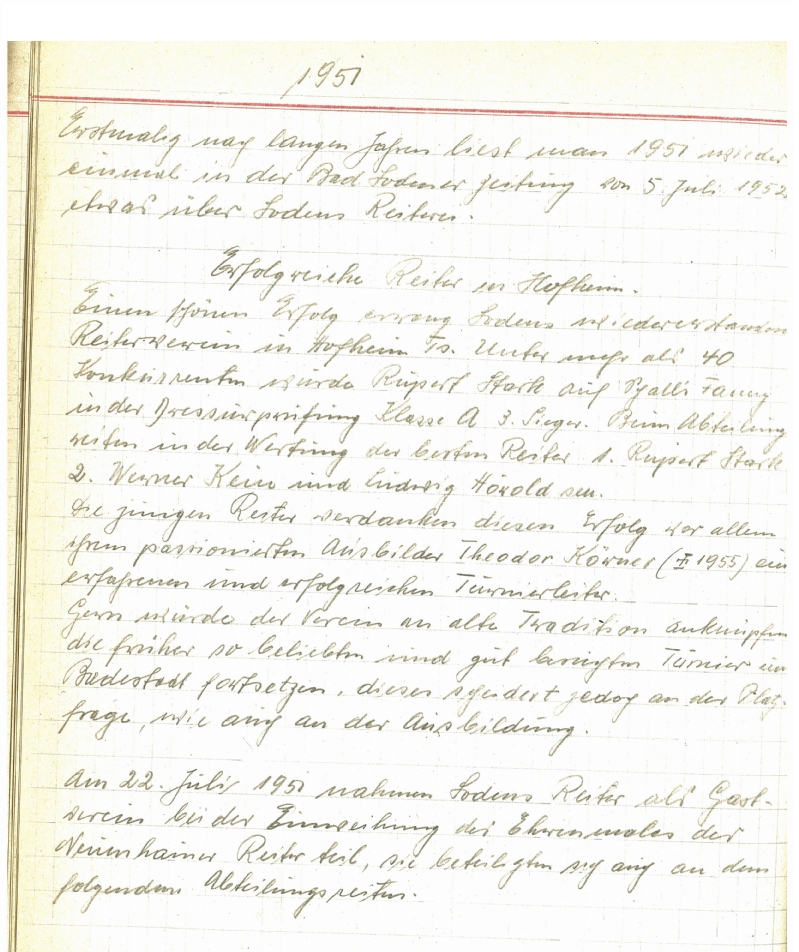 1951
Erstmalig nach langen Jahren liest man 1951 wieder
einmal in der Bad Sodener Zeitung von 5. Juli 1952
etwas über Sodens Reiterei.
Erfolgreiche Reiter in Hofheim.
Einen schönen Erfolg errang Sodens wiedererstanden
Reiterverein in Hofheim Ts. Unter mehr als 40
Konkurrenten wurde Rupert Stark auf Fanny
in der Dressurprüfung Klasse A 3. Sieger. Beim Abteilung
reiten in der Wertung der besten Reiter 1. Rupert Stark
2. Werner Kein und Ludwig Hörold sen.
Die jungen Reiter verdanken diesen Erfolg vor allem
ihrem passionierten Ausbilder Theodor Körner (1955) ein
erfahrenen und erfolgreichen Turnierleiter.
Gern würde der Verein an alte Tradition anknüpfen
die früher so beliebten und gut Turnier in
Badestadt fortsetzen, dieses scheitert jedoch an der Platz-
frage, wie auch an der Ausbildung.
Am 22. Juli 1951 nahmen Sodens Reiter als Gast-
verein bei der Einweihung des Ehrenmales der
Neuenhainer Reiter teil, sie beteiligten sich auch an dem
folgenden Abteilungsreiten.